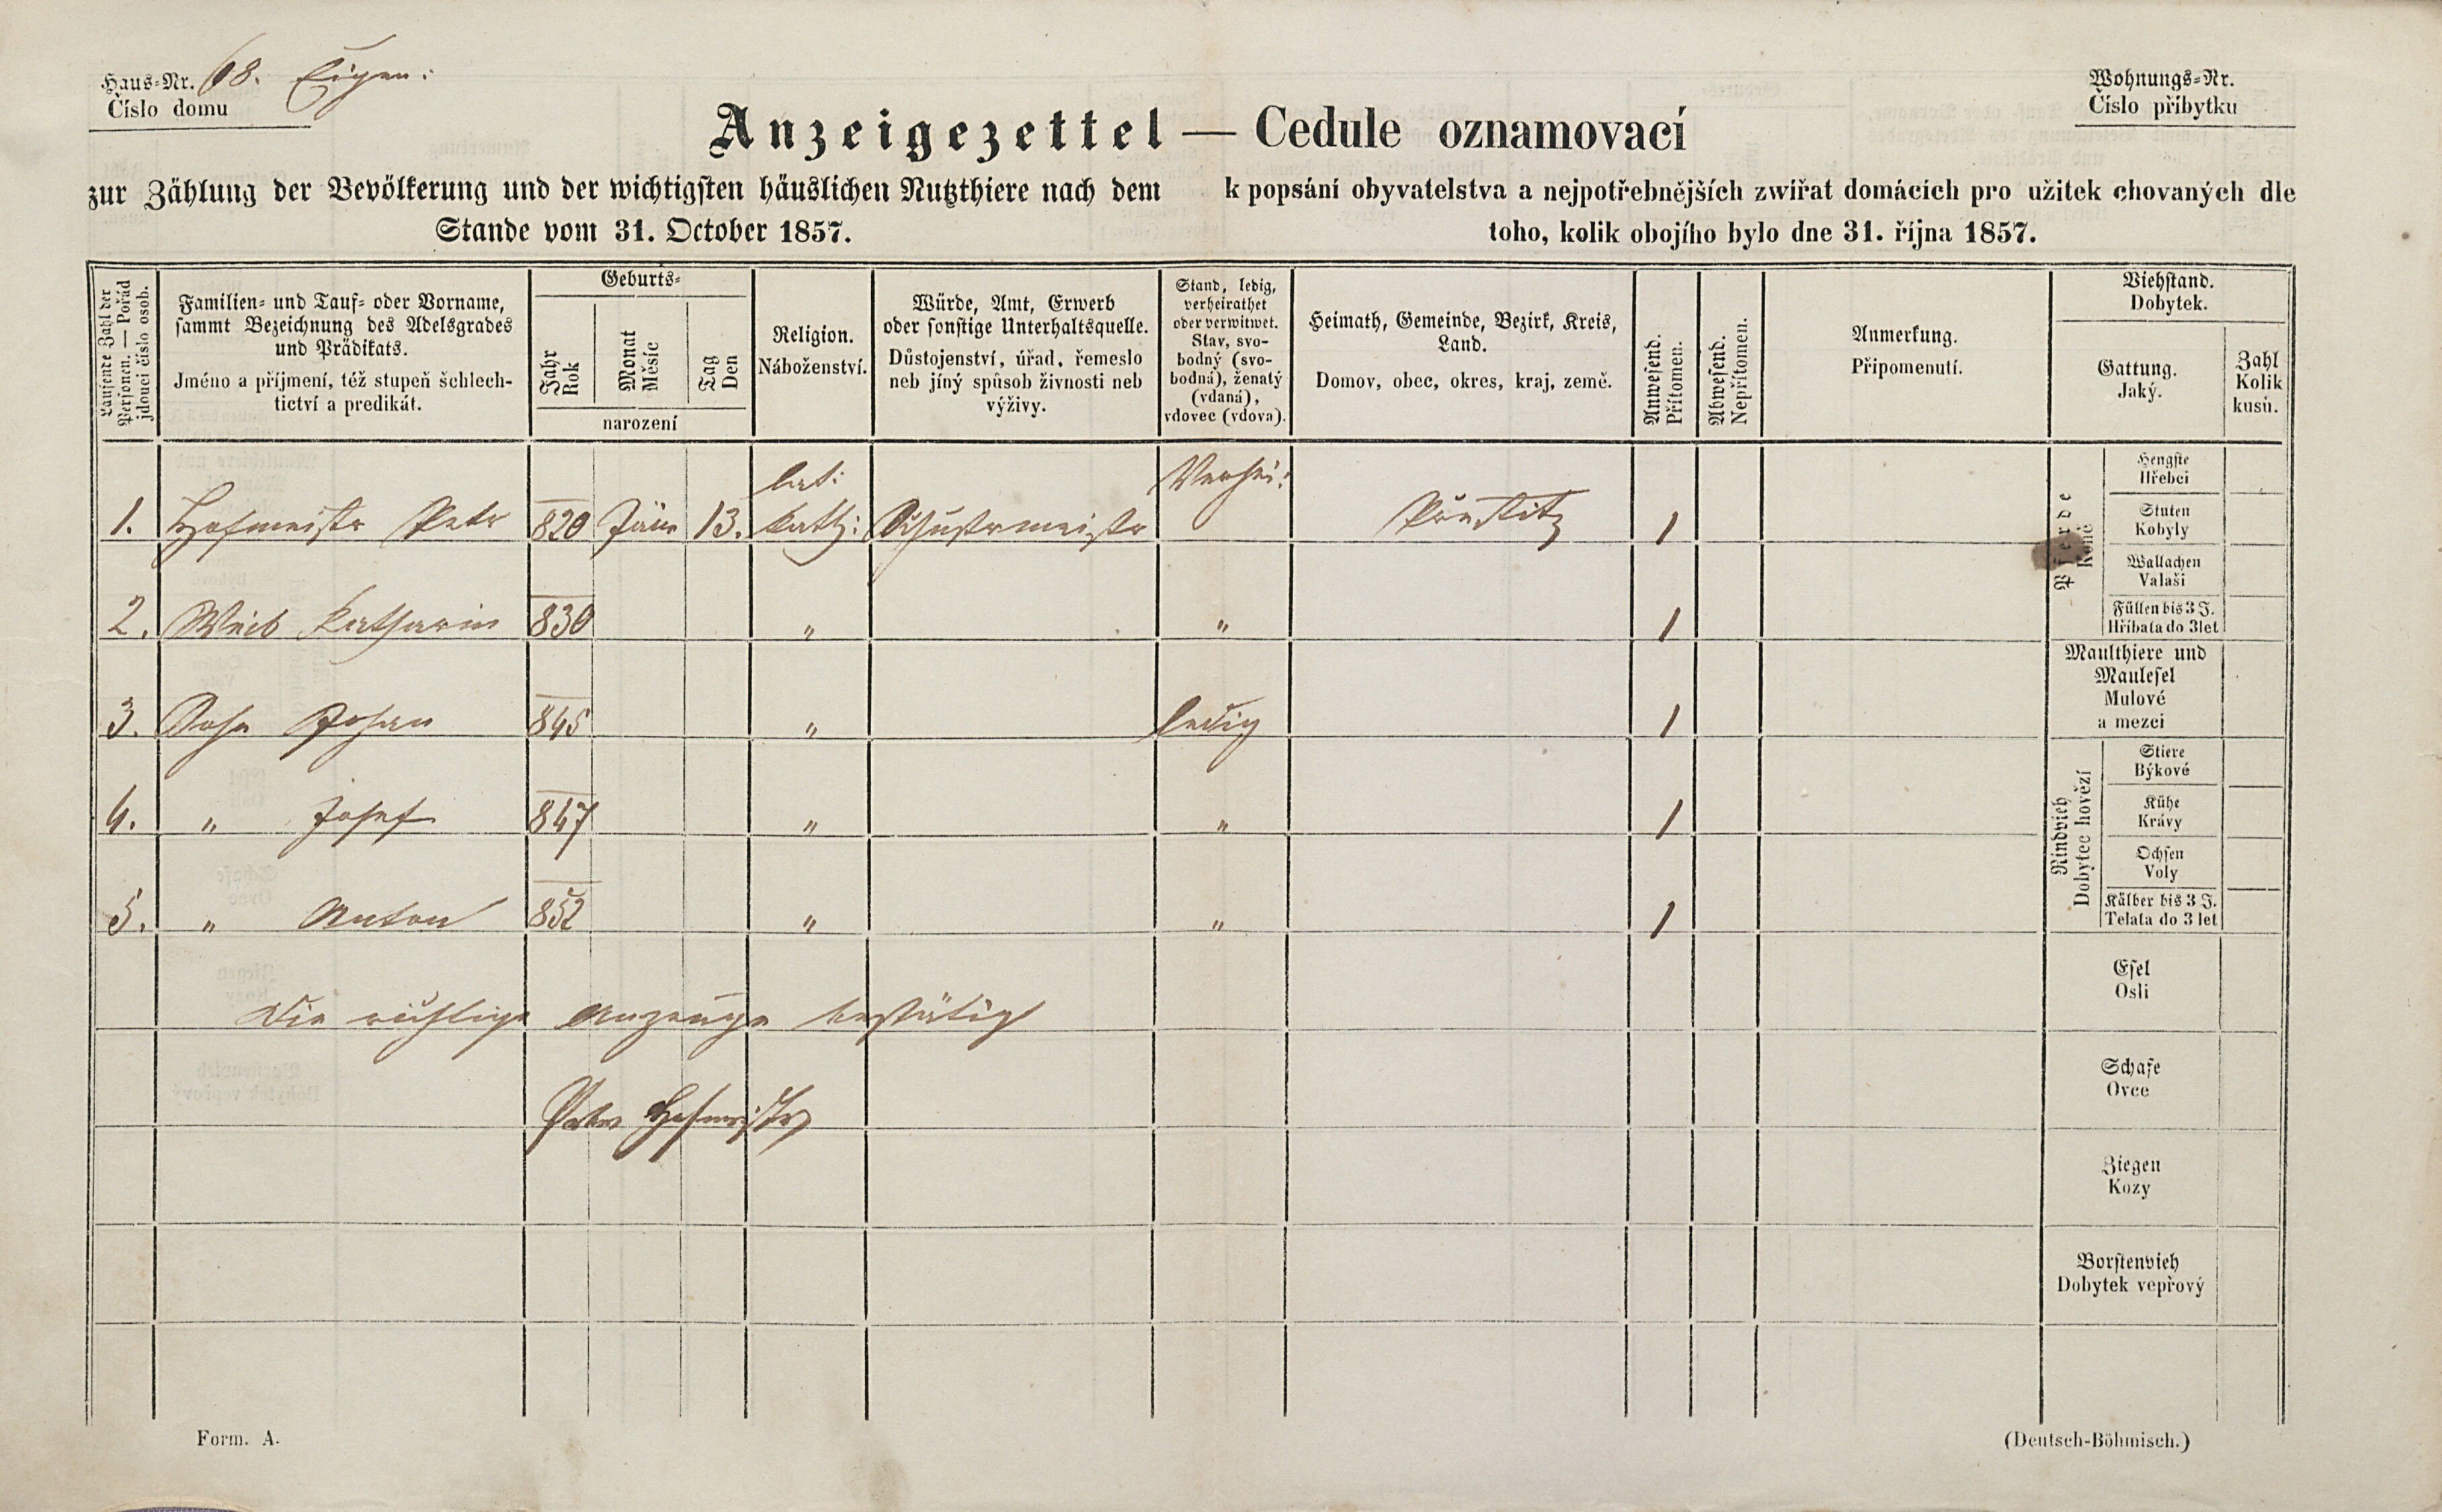 Haus-Nr. 68. Eigen:
Číslo domu
Wohnungs-Nr.
Číslo příbytku
Anzeigezettel — Cedule oznamovací
zur Zählung der Bevölkerung und der wichtigsten häuslichen Nutzthiere nach dem
Stande vom 31. October 1857.
k popsání obyvatelstva a nejpotřebnějších zwířat domácích pro užitek chovaných dle
toho, kolik obojího bylo dne 31. října 1857.
Laufende Zahl der
Personen. — Pořád
jdoucí číslo osob.
Familien- und Tauf- oder Vorname,
sammt Bezeichnung des Adelsgrades
und Prädikats.
Jméno a příjmení, též stupeň šchlech-
tictví a predikát.
Geburts-
Jahr
Rok
Monat
Měsíc
Tag
Den
narození
Religion.
Náboženství.
Würde, Amt, Erwerb
oder sonstige Unterhaltsquelle.
Důstojenství, úřad, řemeslo
neb jiný spůsob živnosti neb
výživy.
Stand, ledig,
verheirathet
oder verwitwet.
Stav, svo-
bodný (svo-
bodná), ženatý
(vdaná),
vdovec (vdova).
Heimath, Gemeinde, Bezirk, Kreis,
Land.
Domov, obec, okres, kraj, země.
Anwesend.
Přítomen.
Abwesend.
Nepřítomen.
Anmerkung.
Připomenutí.
Viehstand.
Dobytek.
Gattung.
Jaký.
Zahl
Kolik
kusů.
1. Hofmeister Peter 820 Jäner 13. kat: kath: Schustermeister Verhei: Přestitz 1
2. Weib Katharina 830 " " 1
3. Sohn Johan 845 " ledig 1
4. " Josef 847 " " 1
5. " Anton 852 " " 1
Die richtige Anzeige bestätigt
Peter Hofmeister
Pferde
Koně
Hengste
Hřebci
Stuten
Kobyly
Wallachen
Valaši
Füllen bis 3 J.
Hříbata do 3 let
Maulthiere und
Maulesel
Mulové
a mezci
Rindvieh
Dobytec hovězí
Stiere
Býkové
Kühe
Krávy
Ochsen
Voly
Kälber bis 3 J.
Telata do 3 let
Esel
Osli
Schafe
Ovce
Ziegen
Kozy
Borstenvieh
Dobytek vepřový
Form. A.
(Deutsch-Böhmisch.)